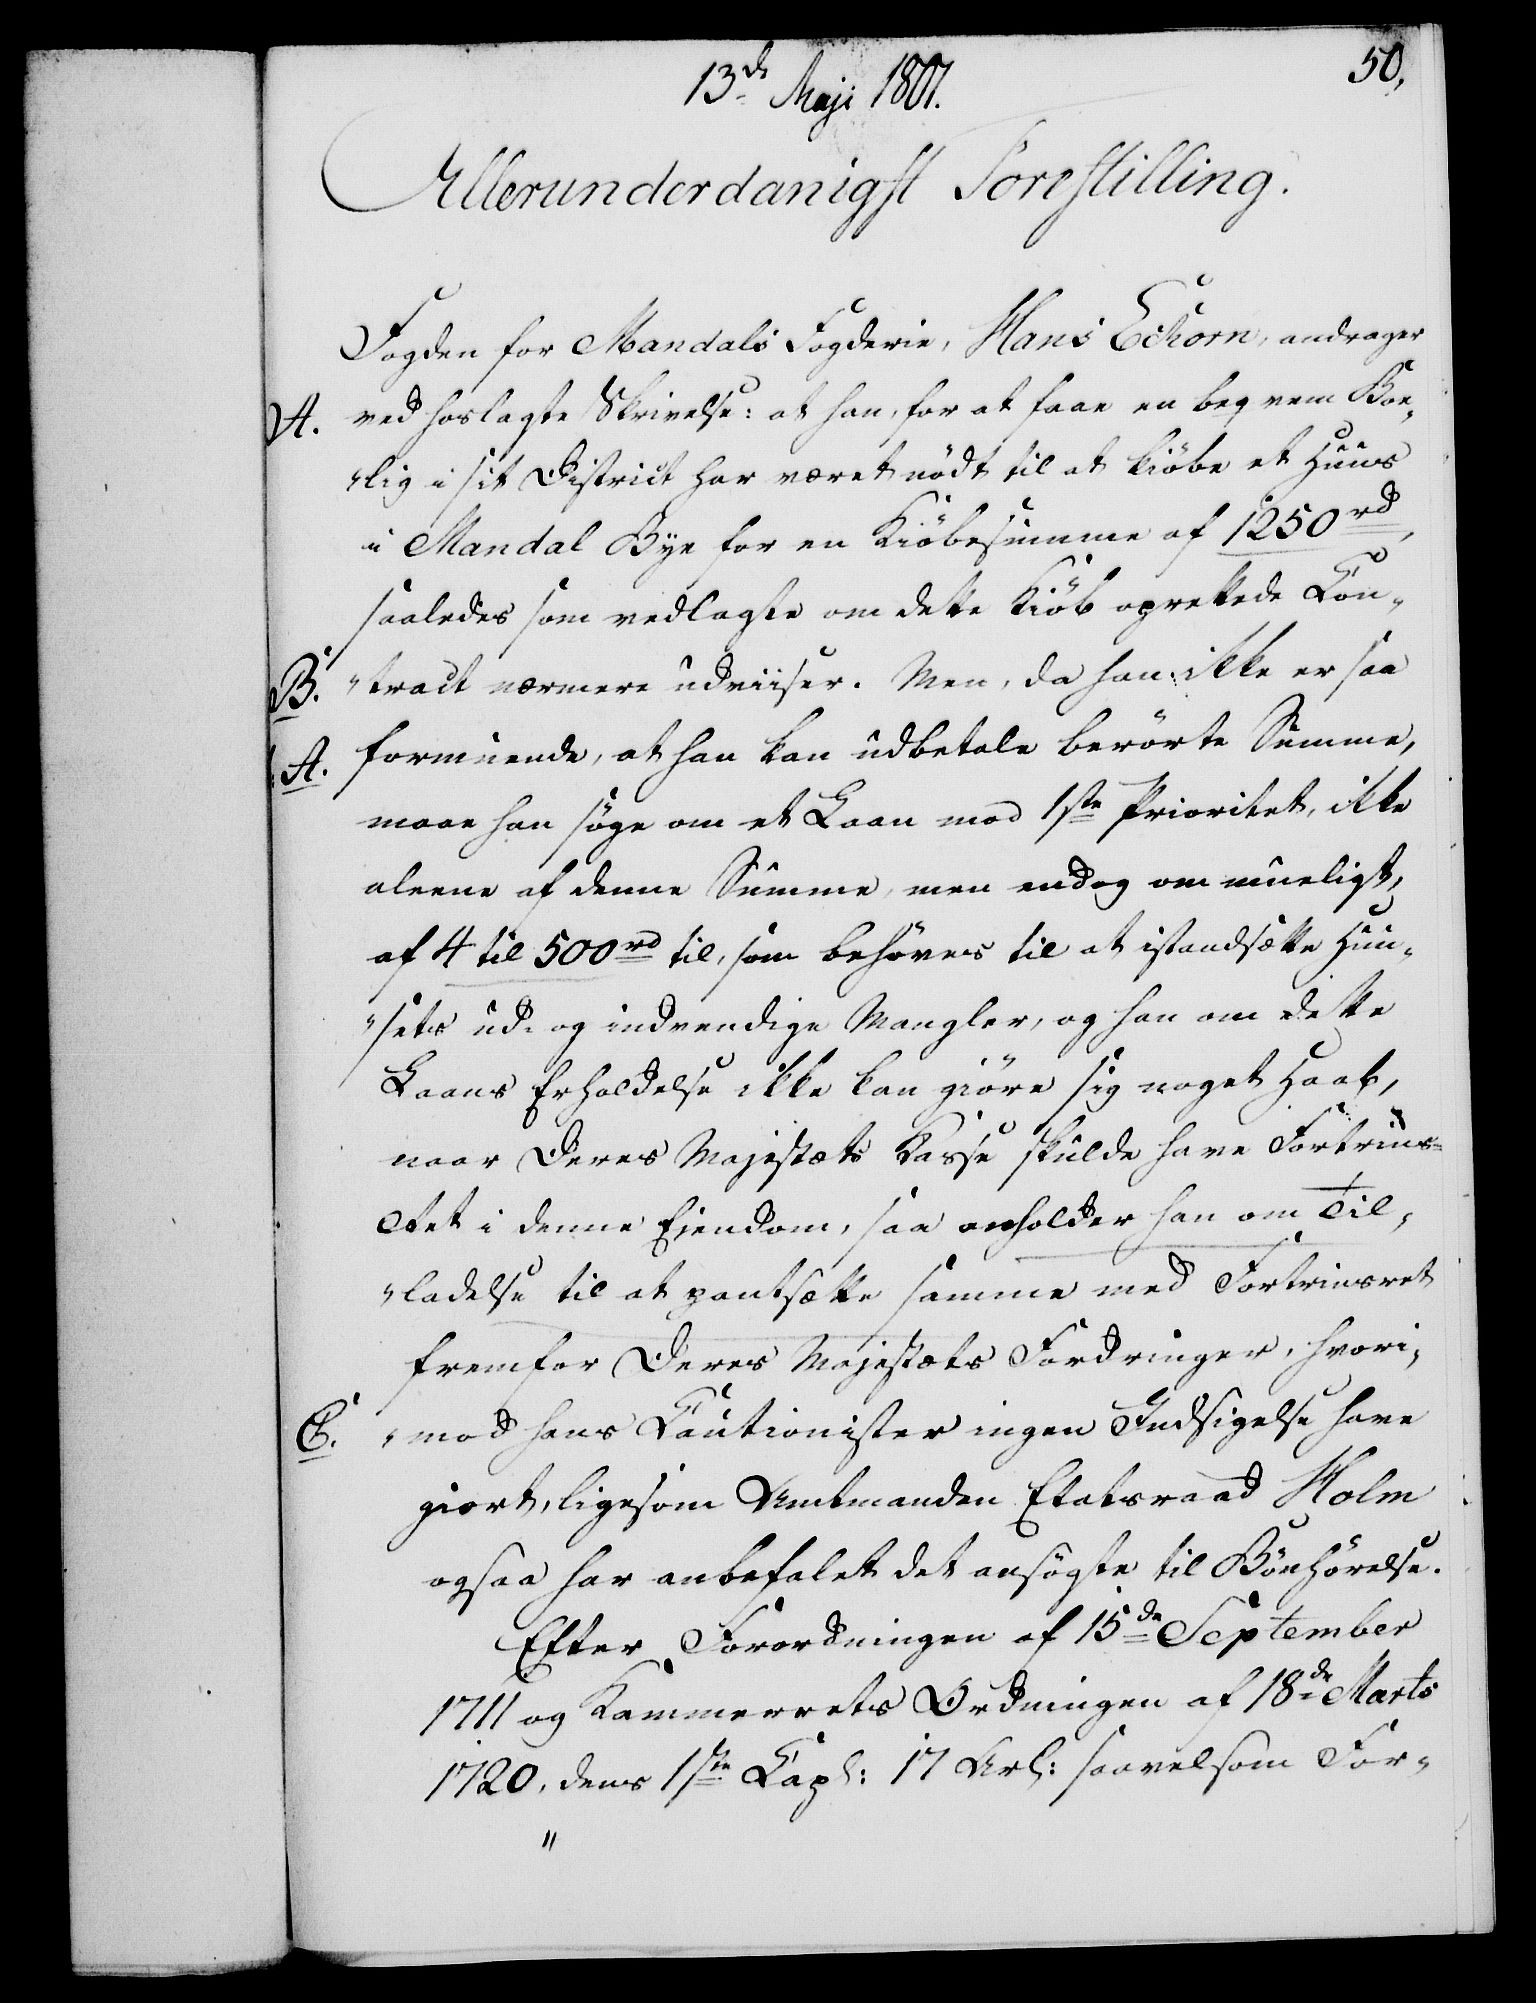 13de Maji 1801.
50,
Allerunderdanigst Forestilling.
Fogden for Mandals Fogderie, Hans Eckorn, andrager
A. ved hoslagte Skrivelse: at han, for at faae en beqvem Boe-
"lig i sit District har været nödt til at kiöbe et Huus
i Mandal Bye for en Kiöbesumme af 1250 rd,
saaledes som vedlagte om dette Kiöb oprettede Con-
B. "tract nærmere udviiser. Men, da han ikke er saa
A. formuende, at han kan udbetale berörte Summe,
maae han söge om et Laan mod 1ste Prioritet, ikke
aleene af denne Summe, men endog om mueligt,
af 4 til 500 rd til, som behöves til at istandsætte Huu-
"sets ud- og indvendige Mangler, og han om dette
Laans Erholdelse ikke kan giöre sig noget Haab,
naar Deres Majestæts Kasse skulde have Fortrins-
Ret i denne Eiendom, saa anholder han om Til-
"ladelse til at pantsætte samme med Fortrinsret
fremfor Deres Majestæts Fordringer, hvori-
C. "mod hans Cautionister ingen Indsigelse have
giort, ligesom Amtmanden Etatsraad Holm
ogsaa har anbefalet det ansögte til Bönhörelse.
Efter Forordningen af 15de September
1711 og Kammerrets Ordningen af 18de Marts
1720, dens 1ste Capl: 17 Arl: saavelsom For-
"